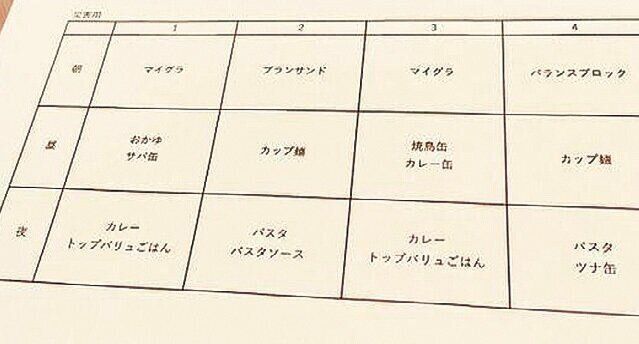 災害用
1 2 3 4
朝 マイグラ ブランサンド マイグラ バランスブロック
昼 おかゆ サバ缶 カップ麺 焼鳥缶 カレー缶 カップ麺
夜 カレー トップバリュごはん パスタ パスタソース カレー トップバリュごはん パスタ ツナ缶